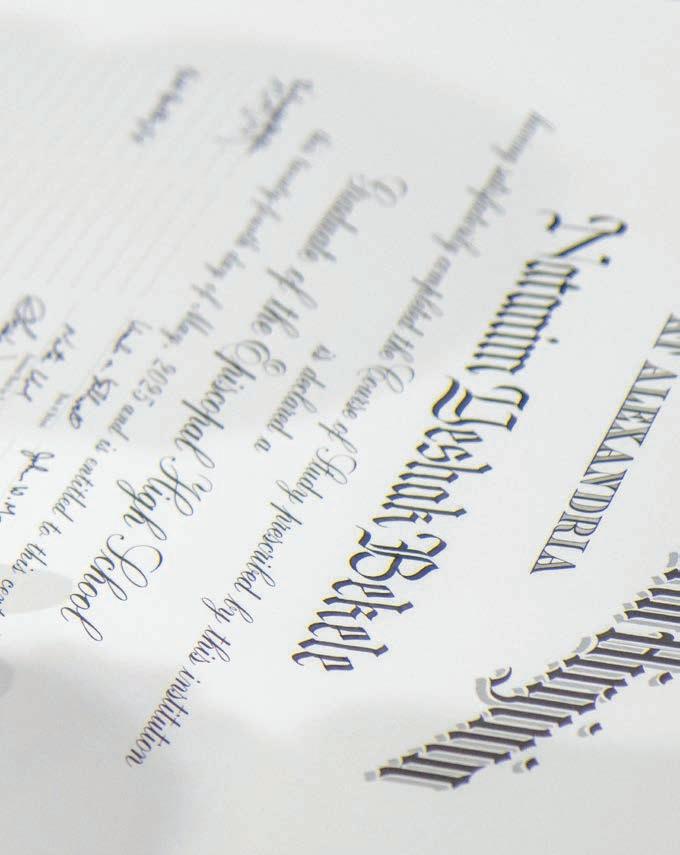 in Virginia
AT ALEXANDRIA
Natanim Yeshak Bekele
having satisfactorily completed the Course of Study prescribed by this institution
is declared a
Graduate of the Episcopal High School
day of May, 2025 and is entitled to this